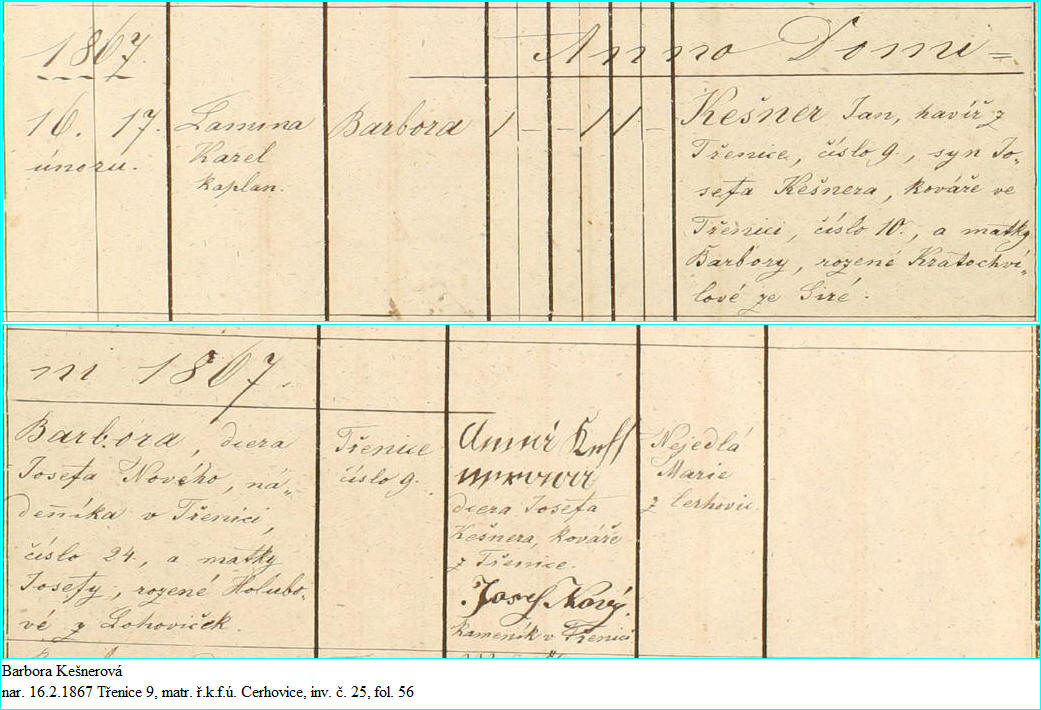 1867.
Anno Domi=
16. 17.
únoru.
Lamina
Karel
kaplan.
Barbora
1 - - 1 1 -
Kešner Jan, havíř z
Třenice, číslo 9., syn Jo-
sefa Kešnera, kováře ve
Třenici, číslo 10., a matky
Barbory, rozené Kratochví-
lové ze Siré.
ni 1867.
Barbora, dcera
Josefa Nového, ná-
deníka v Třenici,
číslo 24., a matky
Josefy, rozené Holubo-
vé z Lohoviček.
Třenice
číslo 9.
Anna
dcera Josefa
Kešnera, kováře
z Třenice.
Josef Nový.
kameník v Třenici
Nejedlá
Marie
z Cerhovic.
Barbora Kešnerová
nar. 16.2.1867 Třenice 9, matr. ř.k.f.ú. Cerhovice, inv. č. 25, fol. 56